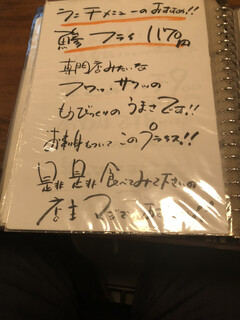 ランチメニューのおすすめ!!
鯵フライ 1170円
専門店みたいな
フワッ、サクッの
もうびっくりのうまさです!!
お刺身もついてこのプライス!!
是非是非食べてみて下さいの
店主